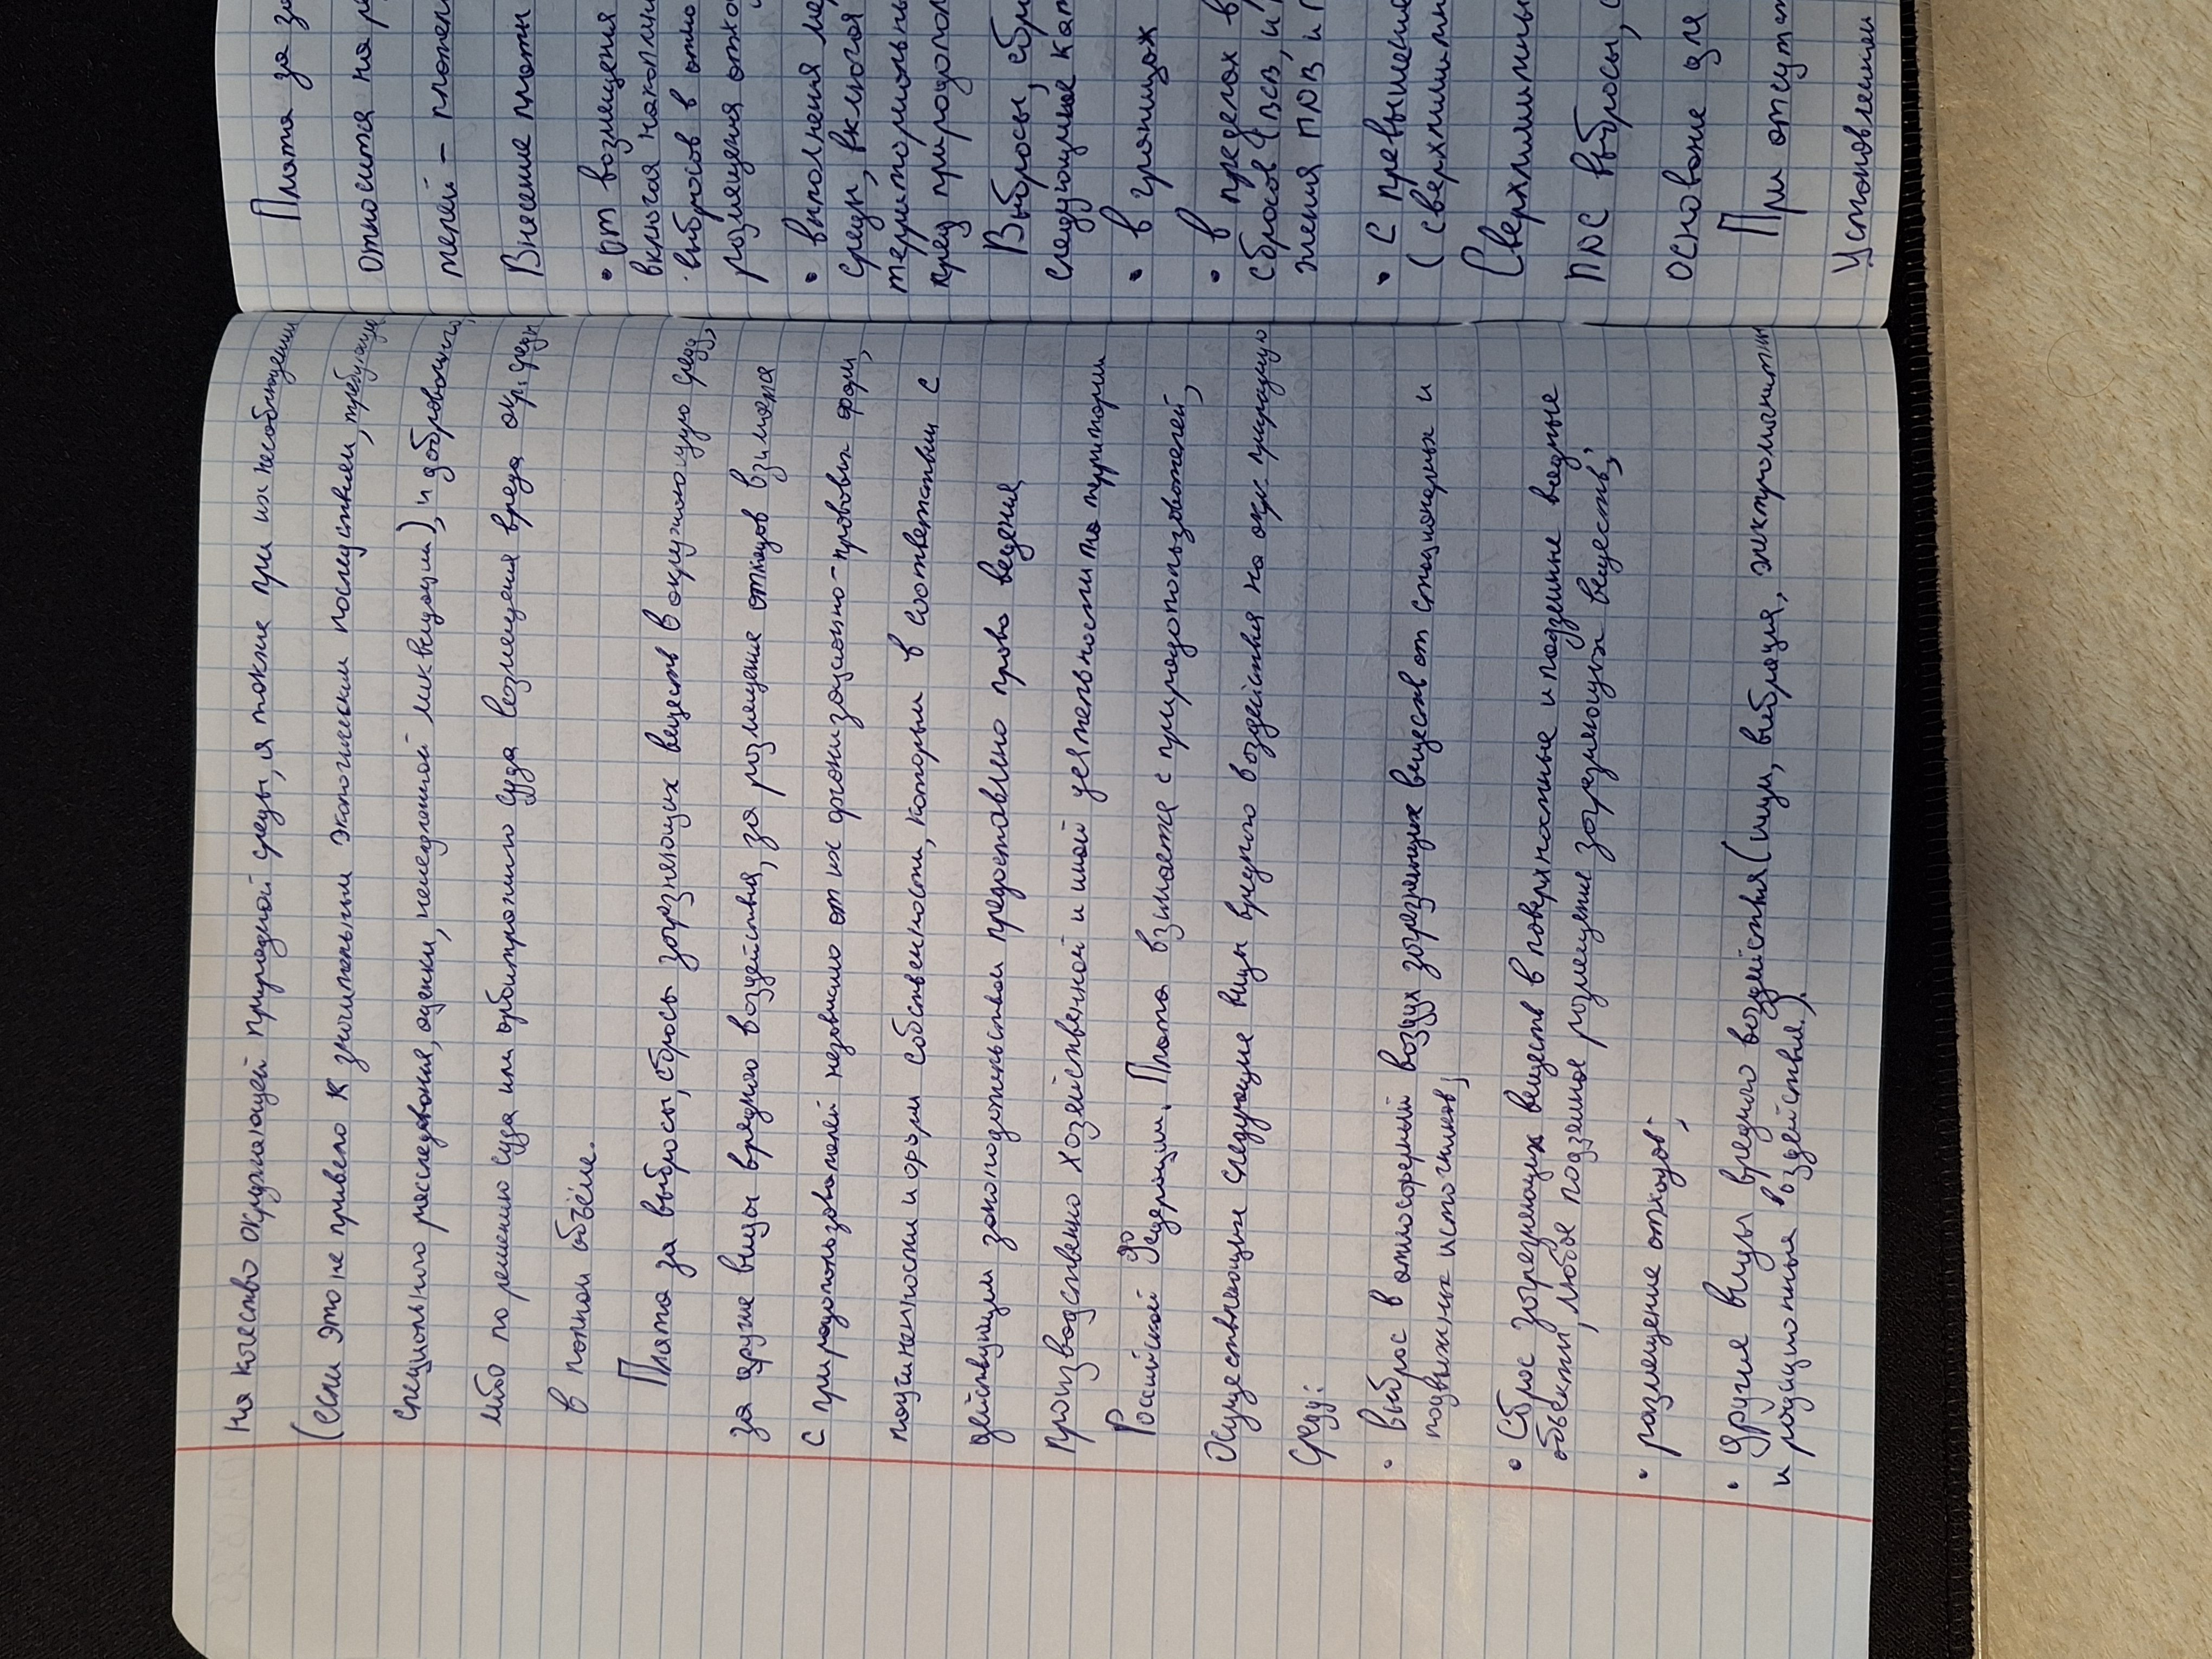 на качество окружающей природной среды, а также при их несоблюдении
(если это не привело к значительным экологическим последствиям, требующим
специального расследования, оценки, немедленной ликвидации), и добровольного,
либо по решению суда или арбитражного суда возмещения вреда окр. среды
в полном объёме.
Плата за выбросы, сбросы загрязняющих веществ в окружающую среду,
за другие виды вредного воздействия, за размещение отходов взимается
с природопользователей независимо от их организационно-правовых форм,
подчиненности и форм собственности, которым в соответствии с
действующим законодательством предоставлено право ведения
производственно хозяйственной и иной деятельности на территории
Российской Федерации. Плата взимается с природопользователей,
осуществляющие следующие виды вредного воздействия на окр. природную
среду:
• выброс в атмосферный воздух загрязняющих веществ от стационарных и
подвижных источников;
• сброс загрязняющих веществ в поверхностные и подземные водные
объекты, любое подземное размещение загрязняющих веществ;
• размещение отходов;
• другие виды вредного воздействия (шум, вибрация, электромагнитные
и радиационные воздействия).
Плата за
относится на
телей - плател
Внесение платы
• от возмещения
включая накоплен
выбросов в
размещения отхо
• выполнения ме
среды, включая
территориальны
пред природопол
Выбросы, сбр
следующие кат
• в границах
• в пределах в
сбросов (ВСВ, и
жения ПДВ и П
• с превышение
(сверхлимитн
Сверхлимитны
ПДС выбросы,
основание для
При отсут
установлении